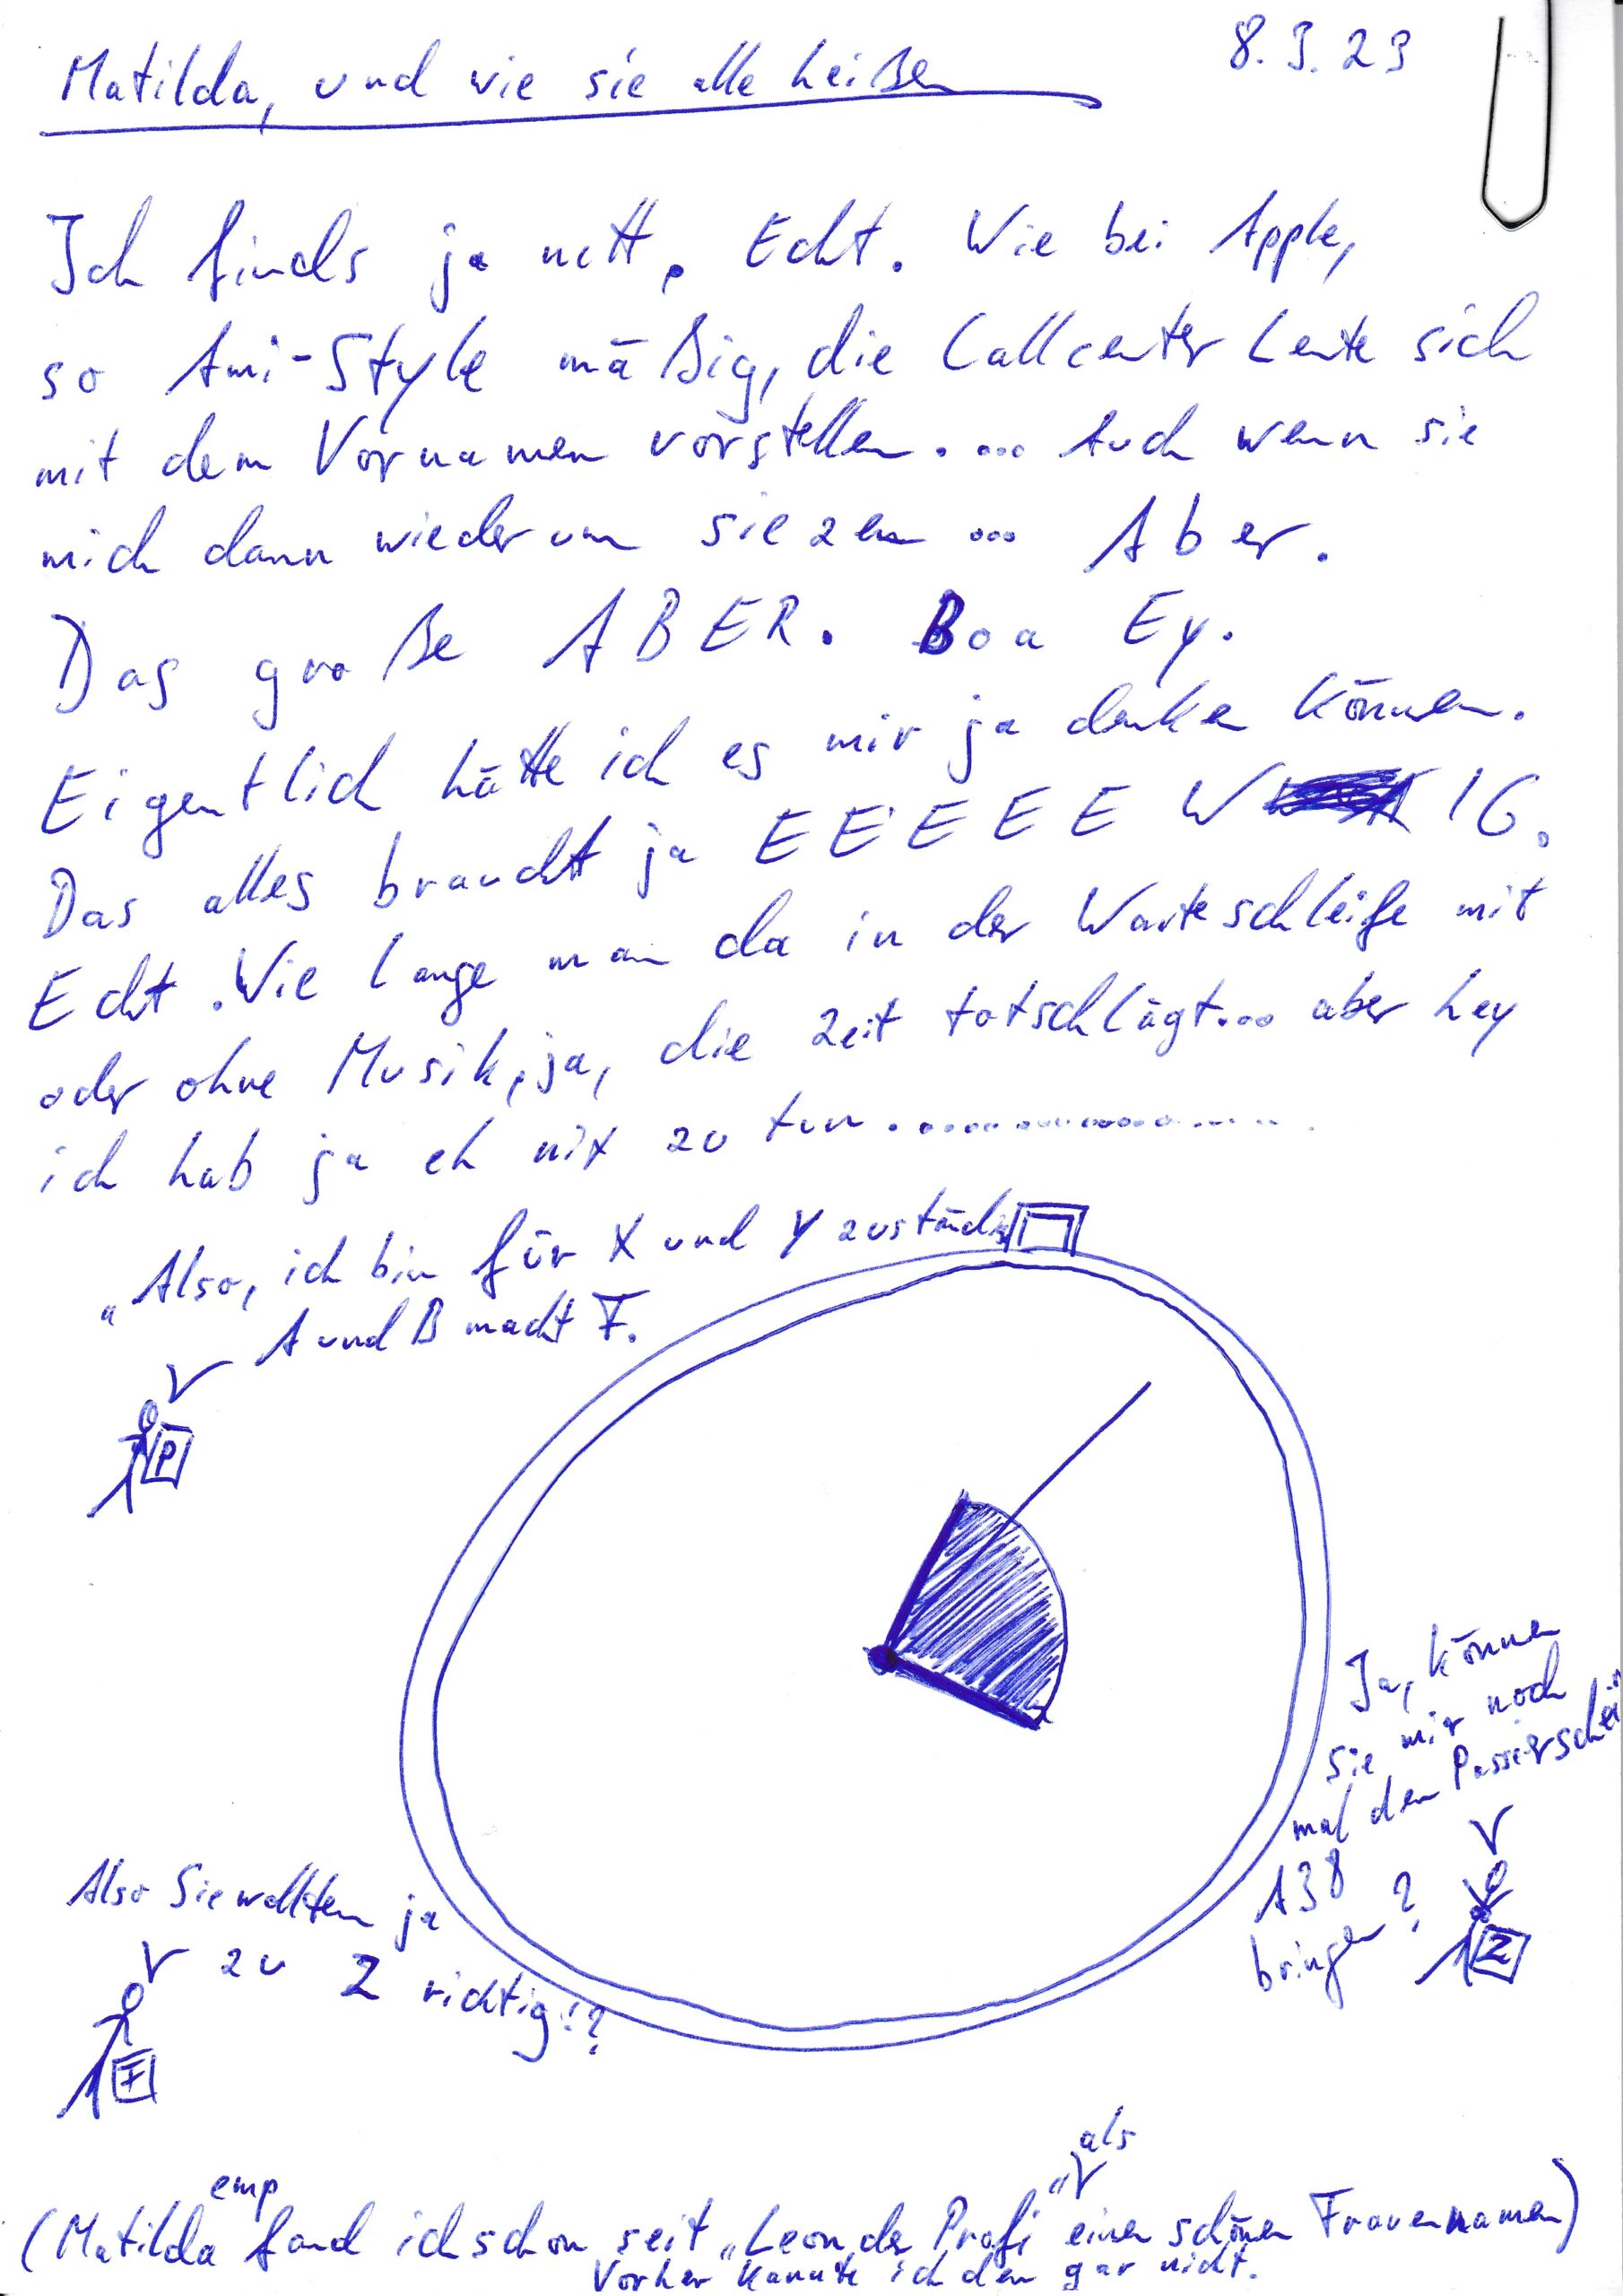 8.3.23
Matilda, und wie sie alle heißen
Ich finds ja nett. Echt. Wie bei Apple,
so Ami-Style mäßig, die Callcenter Leute sich
mit dem Vornamen vorstellen. ... Auch wenn sie
mich dann wiederum siezen ... Aber.
Das große ABER. Boa Ey.
Eigentlich hätte ich es mir ja denken können.
Das alles braucht ja EEEEE W IG.
Echt. Wie lange man da in der Warteschleife mit
oder ohne Musik, ja, die Zeit totschlägt... aber hey
ich hab ja eh nix zu tun ......................
"Also, ich bin für X und Y zuständig
A und B macht F.
P
Ja, können
sie mir noch
mal den Passierschei
A38
bringen?
Z
Also Sie wollten ja
zu Z richtig!?
F
als
emp
(Matilda fand ich schon seit "Leon der Profi" einen schönen Frauennamen)
Vorher kannte ich den gar nicht.